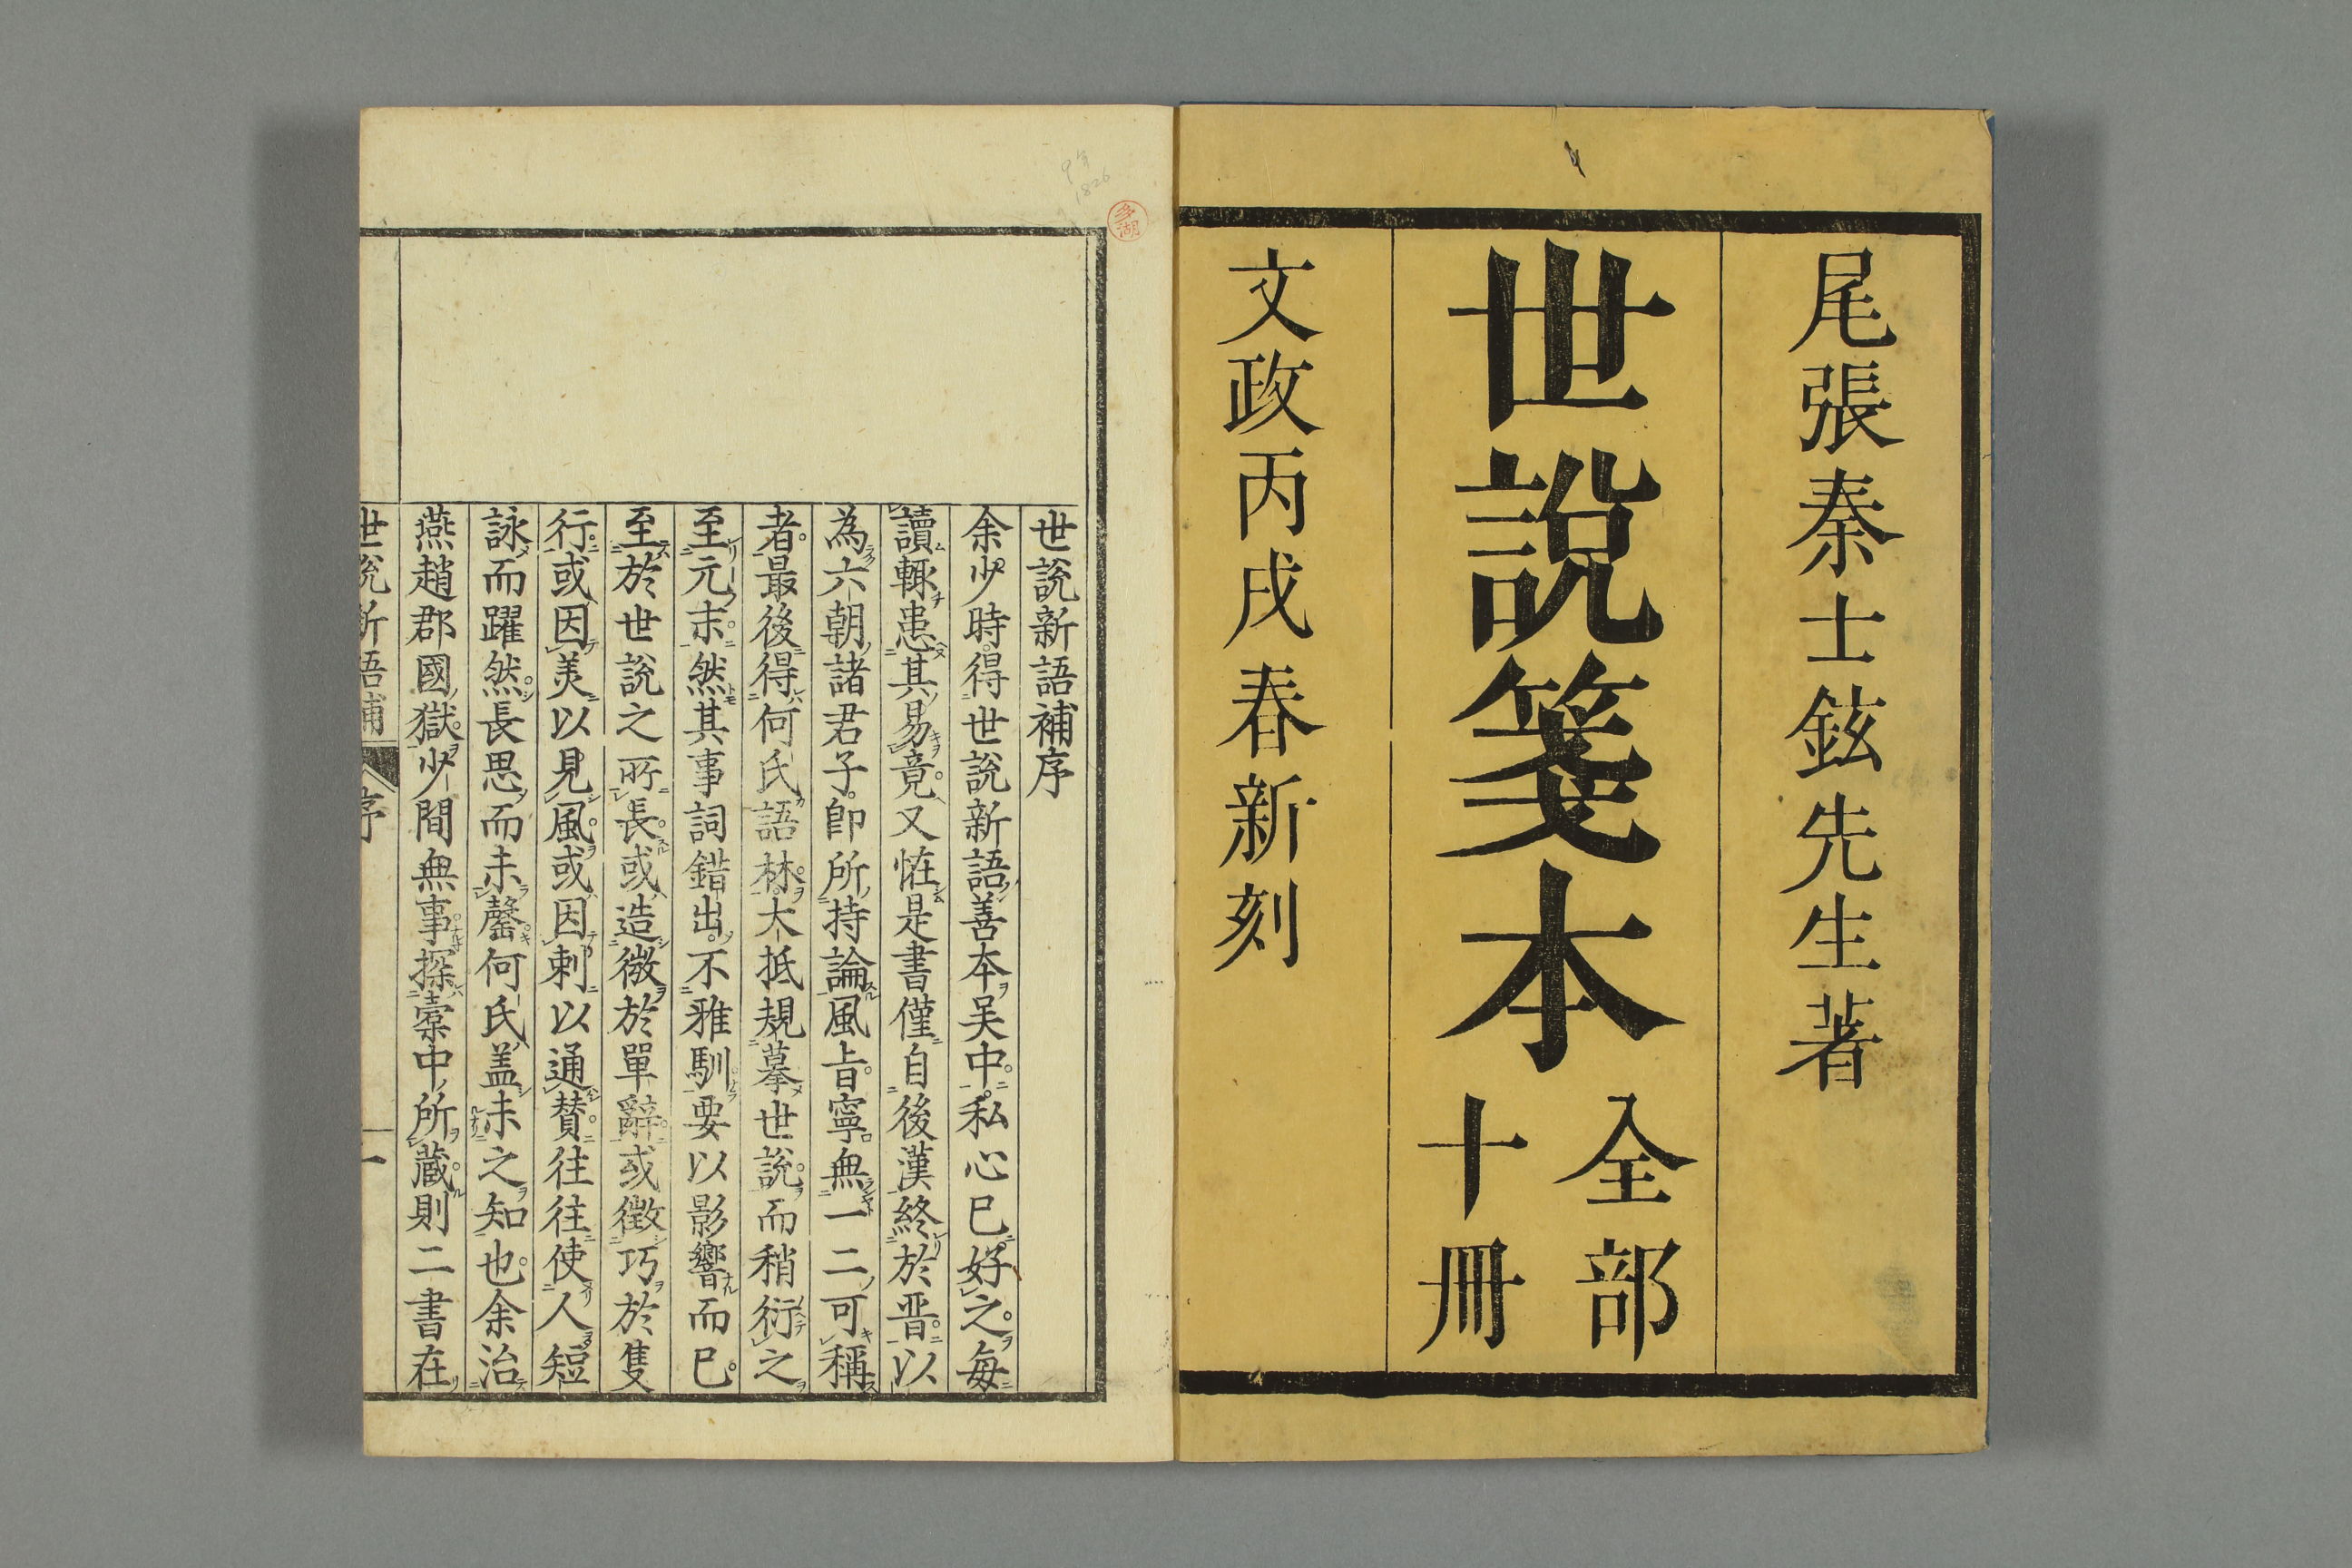 尾張秦士鉉先生著
世說箋本
全部
十冊
文政丙戌春新刻
9年
1826
多湖
世說新語補序
余少時得世說新語善本吴中私心已好之每
讀輙患其易竟又恠是書僅自後漢終於晋以
為六朝諸君子即所持論風旨寧無一二可稱
者最後得何氏語林大抵規摹世說而稍衍之
至元末然其事詞錯出不雅馴要以影響而已
至於世說之所長或造微於單辭或徵巧於隻
行或因美以見風或因刺以通贊往往使人短
詠而躍然長思而未罄何氏盖未之知也余治
燕趙郡國獄少間無事探槖中所藏則二書在
世說新語補 序 一